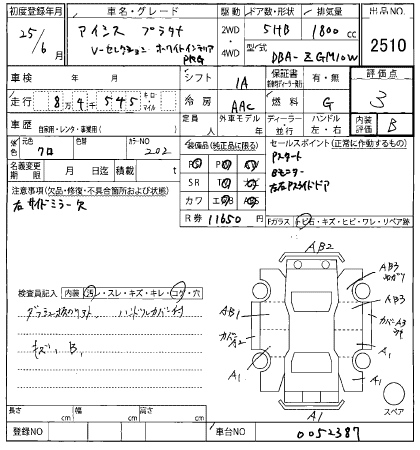 初度登録年月 車名・グレード 駆動 ドア数・形状 排気量 出品NO.
25/6月 アイシス プラタナ 2WD 5HB 1800cc 2510
V-セレクション ホワイトインテリア PKG ・4WD 型式 DBA-ZGM10W
車検 年 月 シフト IA 保証書 有・無 評価点
走行 8万4千545 キロ・マイル 冷房 AAC 燃料 G 3
車歴 自家用・レンタ・事業用( ) 定員 人 外車モデル 年 ディーラー・並行 ハンドル 左・右 内装評価 B
色 元色 クロ 色替 カラーNO 202 装備品(純正品に限る) セールスポイント(正常に動作するもの)
名義変更期限 月 日迄 積載 t Pスタート
SR Bモニター
注意事項(欠品・修復・不具合箇所および状態) カワ 左右Pスライドドア
右サイドミラー欠 R券 11650円
Fガラス トビ石・キズ・ヒビ・ワレ・リペア跡
AB2
検査員記入 内装 汚レ・スレ・キズ・キレ・コゲ・穴
AB3
AB1
カバーA2
カバーA3
キズ、B、
A1
A1
A1
A1
スペア
長さ cm 幅 cm 高さ cm
登録NO 車台NO 0052387